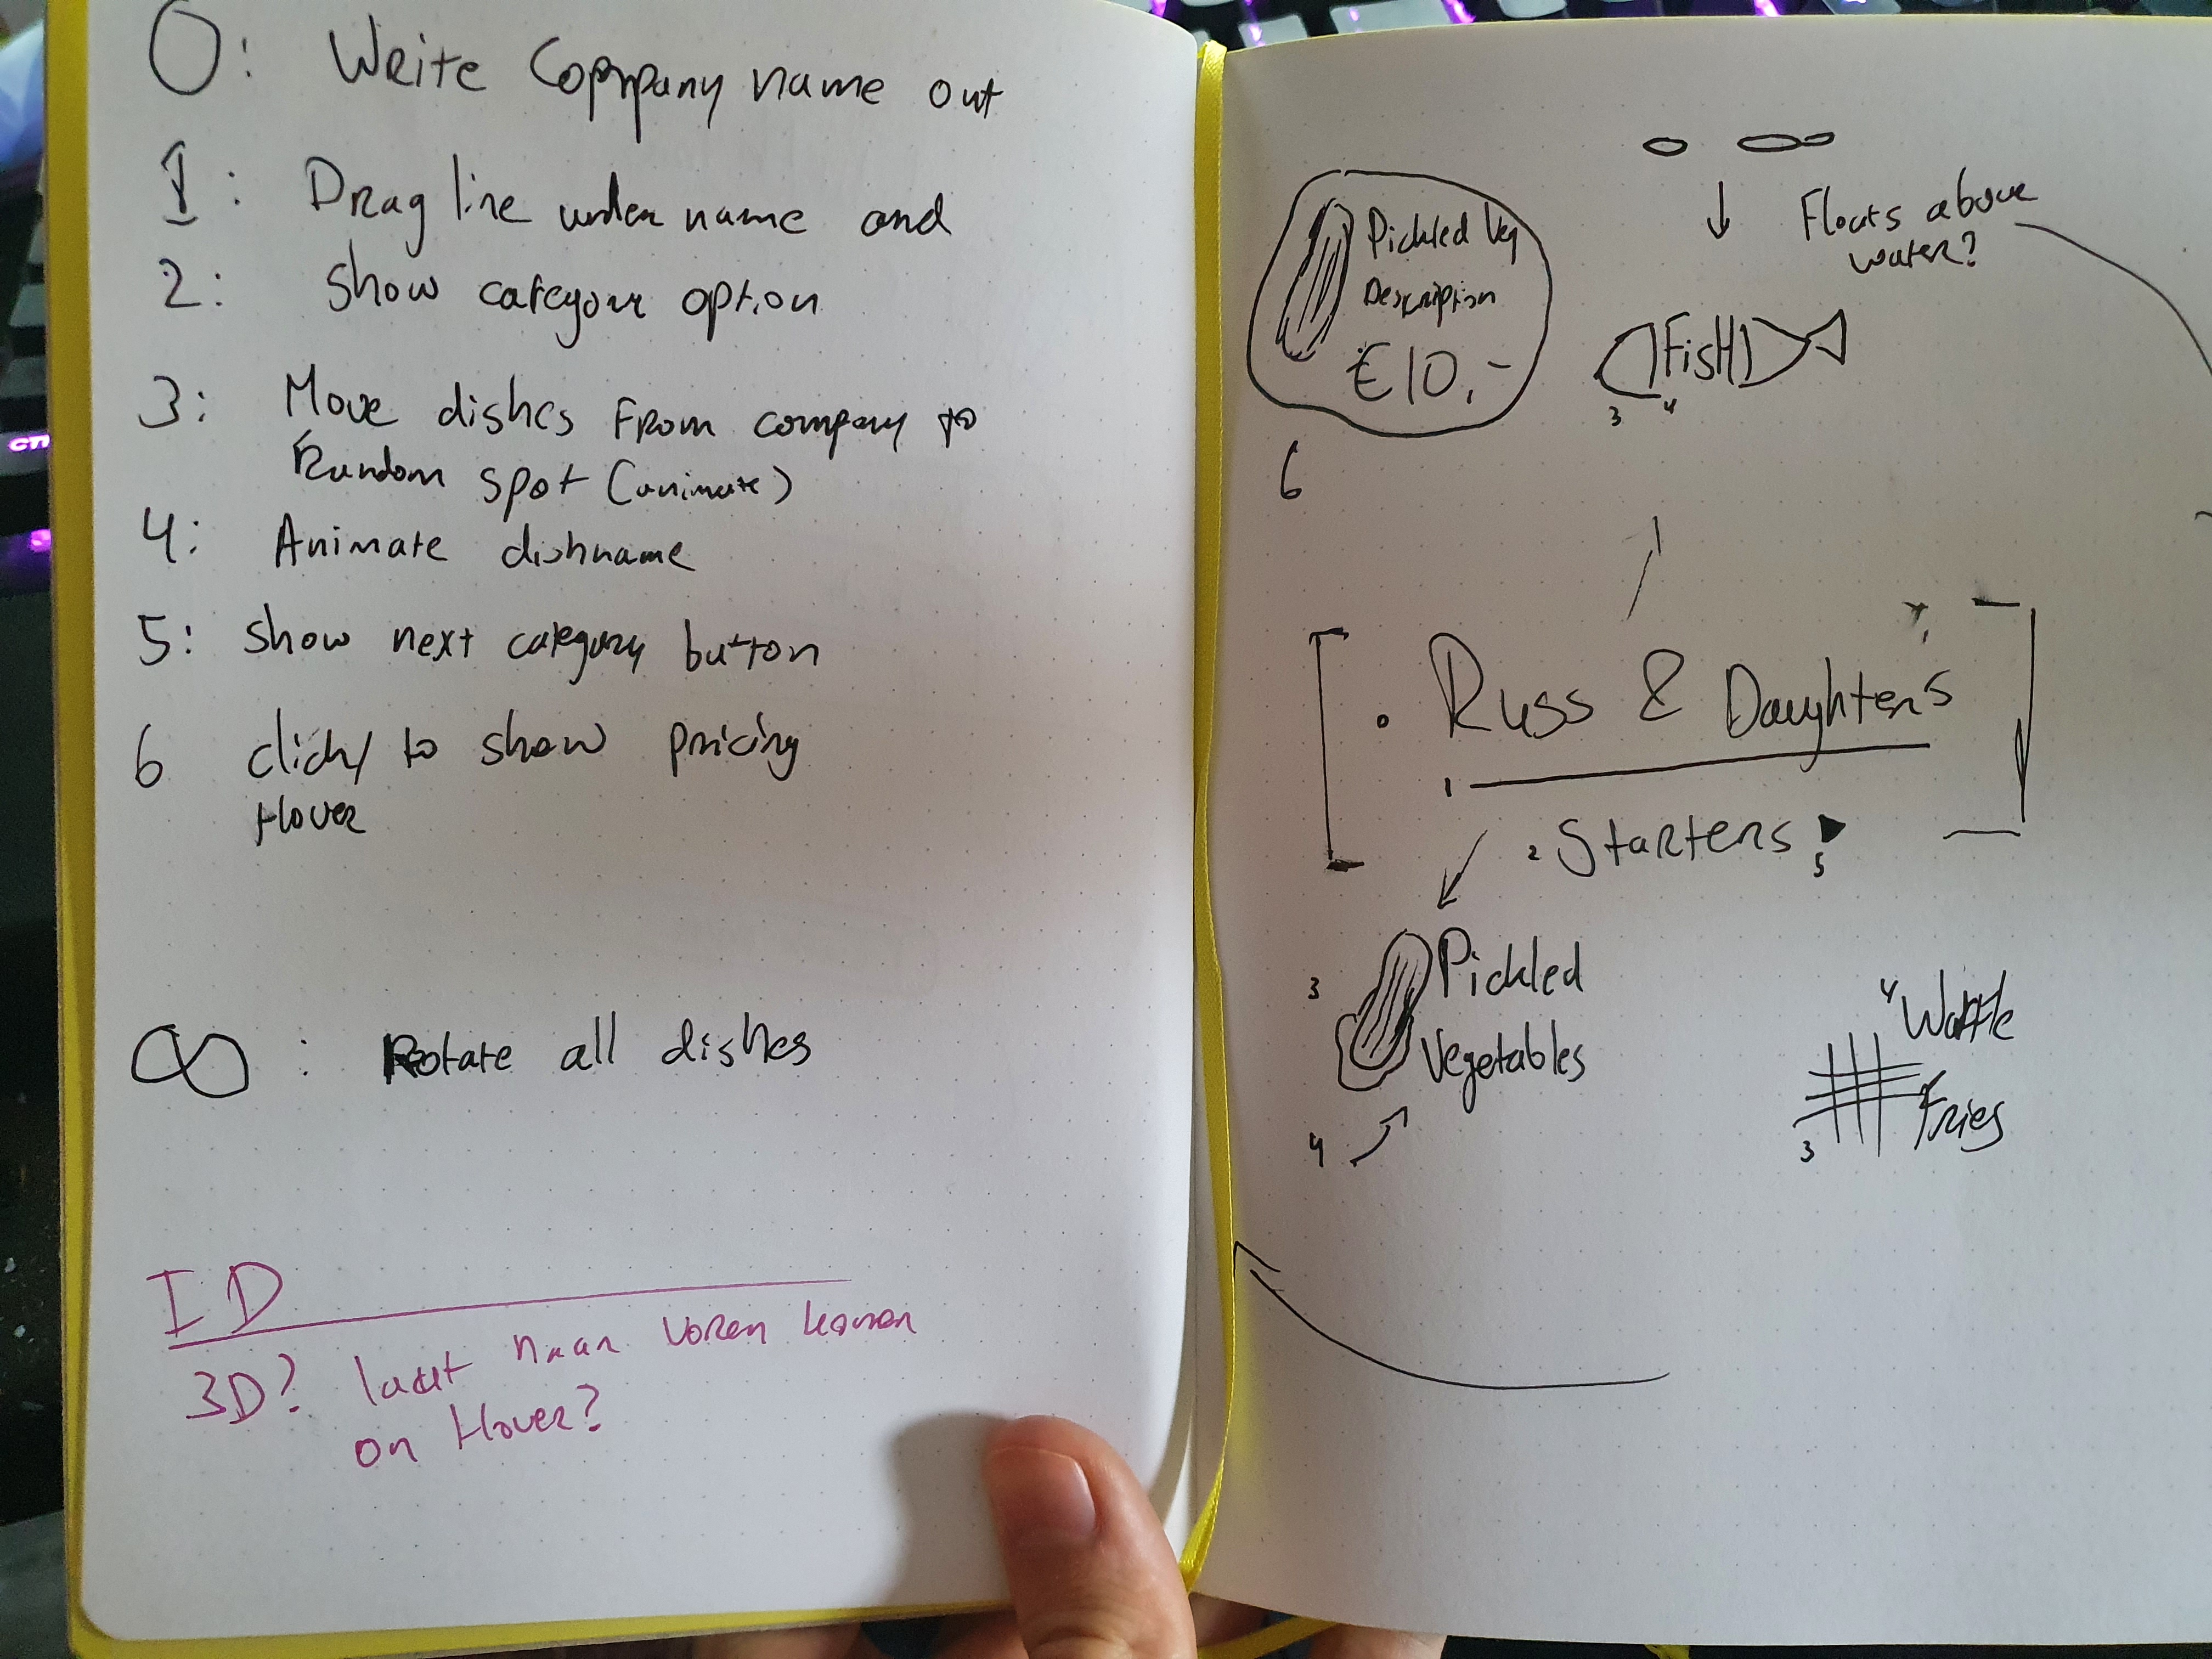 0: Write Company name out
1: Drag line under name and
2: show category option
3: Move dishes from company to
Random spot (animate)
4: Animate dishname
5: show next category button
6 click/ to show pricing
Hover
∞: Rotate all dishes
ID
3D? laat naar voren komen
on Hover?
Floats above
water?
Pickled Veg
Description
€10,-
FisH
3 4
6
0 Russ & Daughters
1
2 Starters
5
3 Pickled
Vegetables
4
4 Waffle
Fries
3